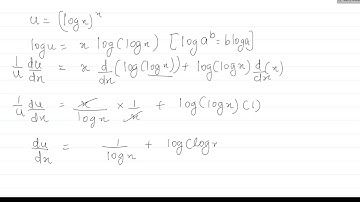 u = (log x)^x
log u = x log(log x) [log a^b = b log a]
1/u du/dx = x d/dx (log(log x)) + log(log x) d/dx (x)
1/u du/dx = x/log x × 1/x + log(log x) (1)
du/dx = 1/log x + log(log x